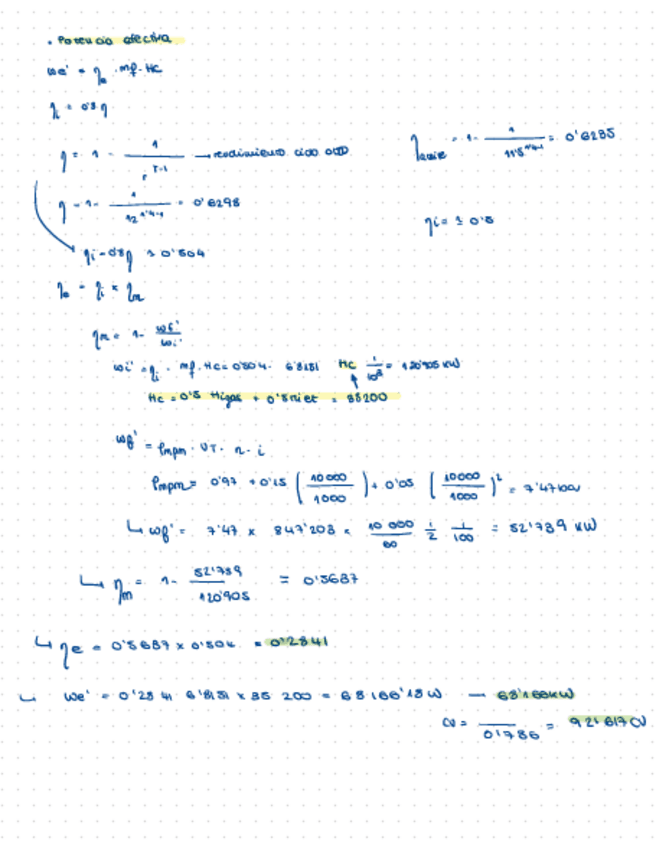 • Potencia efectiva
we' = ηe · mf · Hc
ηi = 0'8 η
η = 1 - 1 / r^γ-1 → rendimiento ciclo OTTO
η = 1 - 1 / 12^1'4-1 = 0'6298
ηi = 0'8 η = 0'504
ηe = ηi × ηm
ηm = 1 - wf' / wi'
wi' = ηi · mf · Hc = 0'504 · 6'8151 Hc 1/10³ = 120'905 kW
Hc = 0'5 Higas + 0'5 Hiet = 35200
wf' = Pmpm · VT · n · i
Pmpm = 0'97 + 0'15 (10000 / 1000) + 0'05 (10000 / 1000)² = 7'47 bar
↳ wf' = 7'47 × 847'203 × 10 000 / 60 1/2 1/100 = 52'739 kW
↳ ηm = 1 - 52'739 / 120'905 = 0'5637
↳ ηe = 0'5637 × 0'504 = 0'2841
↳ we' = 0'2841 6'8151 × 35 200 = 68166'18 W — 68'166 kW
CV = / 0'736 = 92'617 CV
1 - 1 / 11'5^1'4-1 = 0'6235
ηi = 0'5